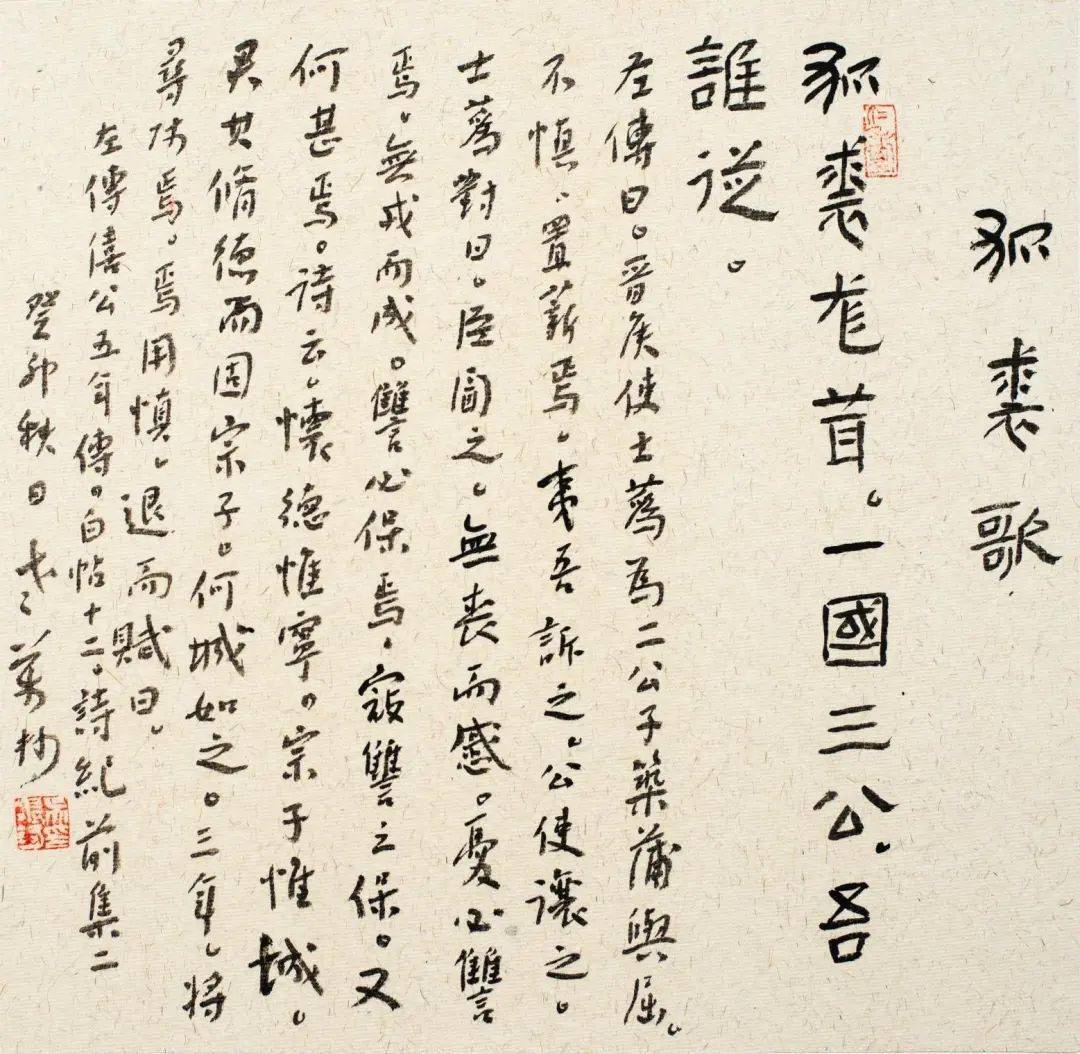 狐裘歌
狐裘尨茸。一國三公。吾
誰從。
左傳曰。晉侯使士蒍為二公子築蒲與屈。
不慎、置薪焉。夷吾訴之。公使讓之。
士蒍對曰。臣聞之。無喪而慼。憂必讎
焉。無戎而成。讎必保焉。寇讎之保。又
何甚焉。詩云。懷德惟寧。宗子惟城。
君其脩德而固宗子。何城如之。三年。將
尋師焉。焉用慎。退而賦曰。
左傳僖公五年傳。白帖十二。詩紀前集二
癸卯秋日 萬抄